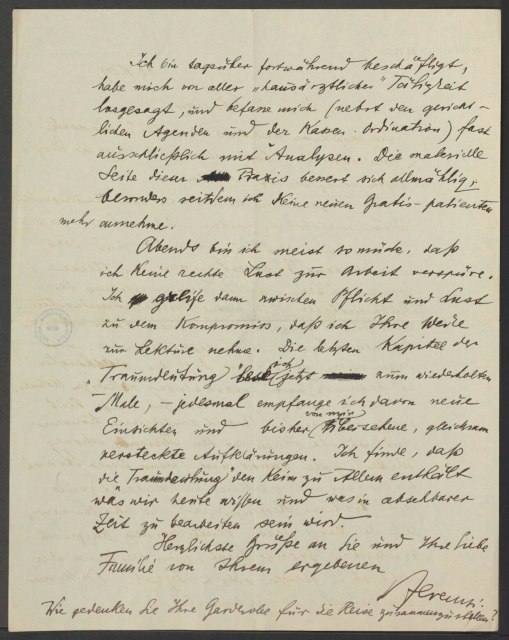 Ich bin tagsüber fortwährend beschäftigt,
habe mich von aller „hausärztlichen" Tätigkeit
losgesagt, und befasse mich (nebst den gericht-
lichen Agenden und der Kassen-Ordination) fast
ausschließlich mit Analysen. Die materielle
Seite dieser Praxis bessert sich allmählig,
besonders seitdem ich keine neuen Gratis-patienten
mehr annehme.
Abends bin ich meist so müde, daß
ich keine rechte Lust zur Arbeit verspüre.
Ich greife dann zwischen Pflicht und Lust
zu dem Kompromiss, daß ich Ihre Werke
zur Lektüre nehme. Die letzten Kapitel der
„Traumdeutung" lese ich jetzt zum wiederholten
Male, – jedesmal empfange ich davon neue
Einsichten und bisher von mir übersehene, gleichsam
versteckte Aufklärungen. Ich finde, daß
die „Traumdeutung" den Keim zu Allem enthält
was wir heute wissen und was in absehbarer
Zeit zu bearbeiten sein wird.
Herzlichste Grüße an Sie und Ihre liebe
Familie von Ihrem ergebenen
Ferenczi
Wie gedenken Sie Ihre Garderobe für die Reise zusammenzustellen?